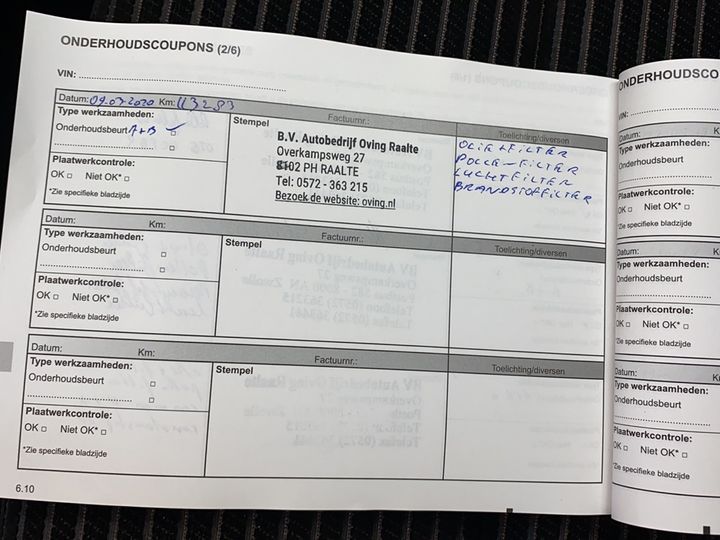 ONDERHOUDSCOUPONS (2/6)
VIN:
Datum: 09-07-2020 Km: 113283 Factuurnr.: Toelichting/diversen
Type werkzaamheden:
Onderhoudsbeurt A+B
Plaatwerkcontrole:
OK Niet OK*
*Zie specifieke bladzijde
Stempel
B.V. Autobedrijf Oving Raalte
Overkampsweg 27
8102 PH RAALTE
Tel: 0572 - 363 215
Bezoek de website: oving.nl
OLIE+FILTER
POLLE-FILTER
LUCHTFILTER
BRANDSTOFFILTER
Datum: Km: Factuurnr.: Toelichting/diversen
Type werkzaamheden:
Onderhoudsbeurt
Plaatwerkcontrole:
OK Niet OK*
*Zie specifieke bladzijde
Stempel
Datum: Km: Factuurnr.: Toelichting/diversen
Type werkzaamheden:
Onderhoudsbeurt
Plaatwerkcontrole:
OK Niet OK*
*Zie specifieke bladzijde
Stempel
6.10
ONDERHOUDSCO
VIN:
Datum: K
Type werkzaamheden:
Onderhoudsbeurt
Plaatwerkcontrole:
OK Niet OK*
*Zie specifieke bladzijde
Datum: K
Type werkzaamheden:
Onderhoudsbeurt
Plaatwerkcontrole:
OK Niet OK*
*Zie specifieke bladzijde
Datum: K
Type werkzaamheden:
Onderhoudsbeurt
Plaatwerkcontrole:
OK Niet OK*
*Zie specifieke bladzijde